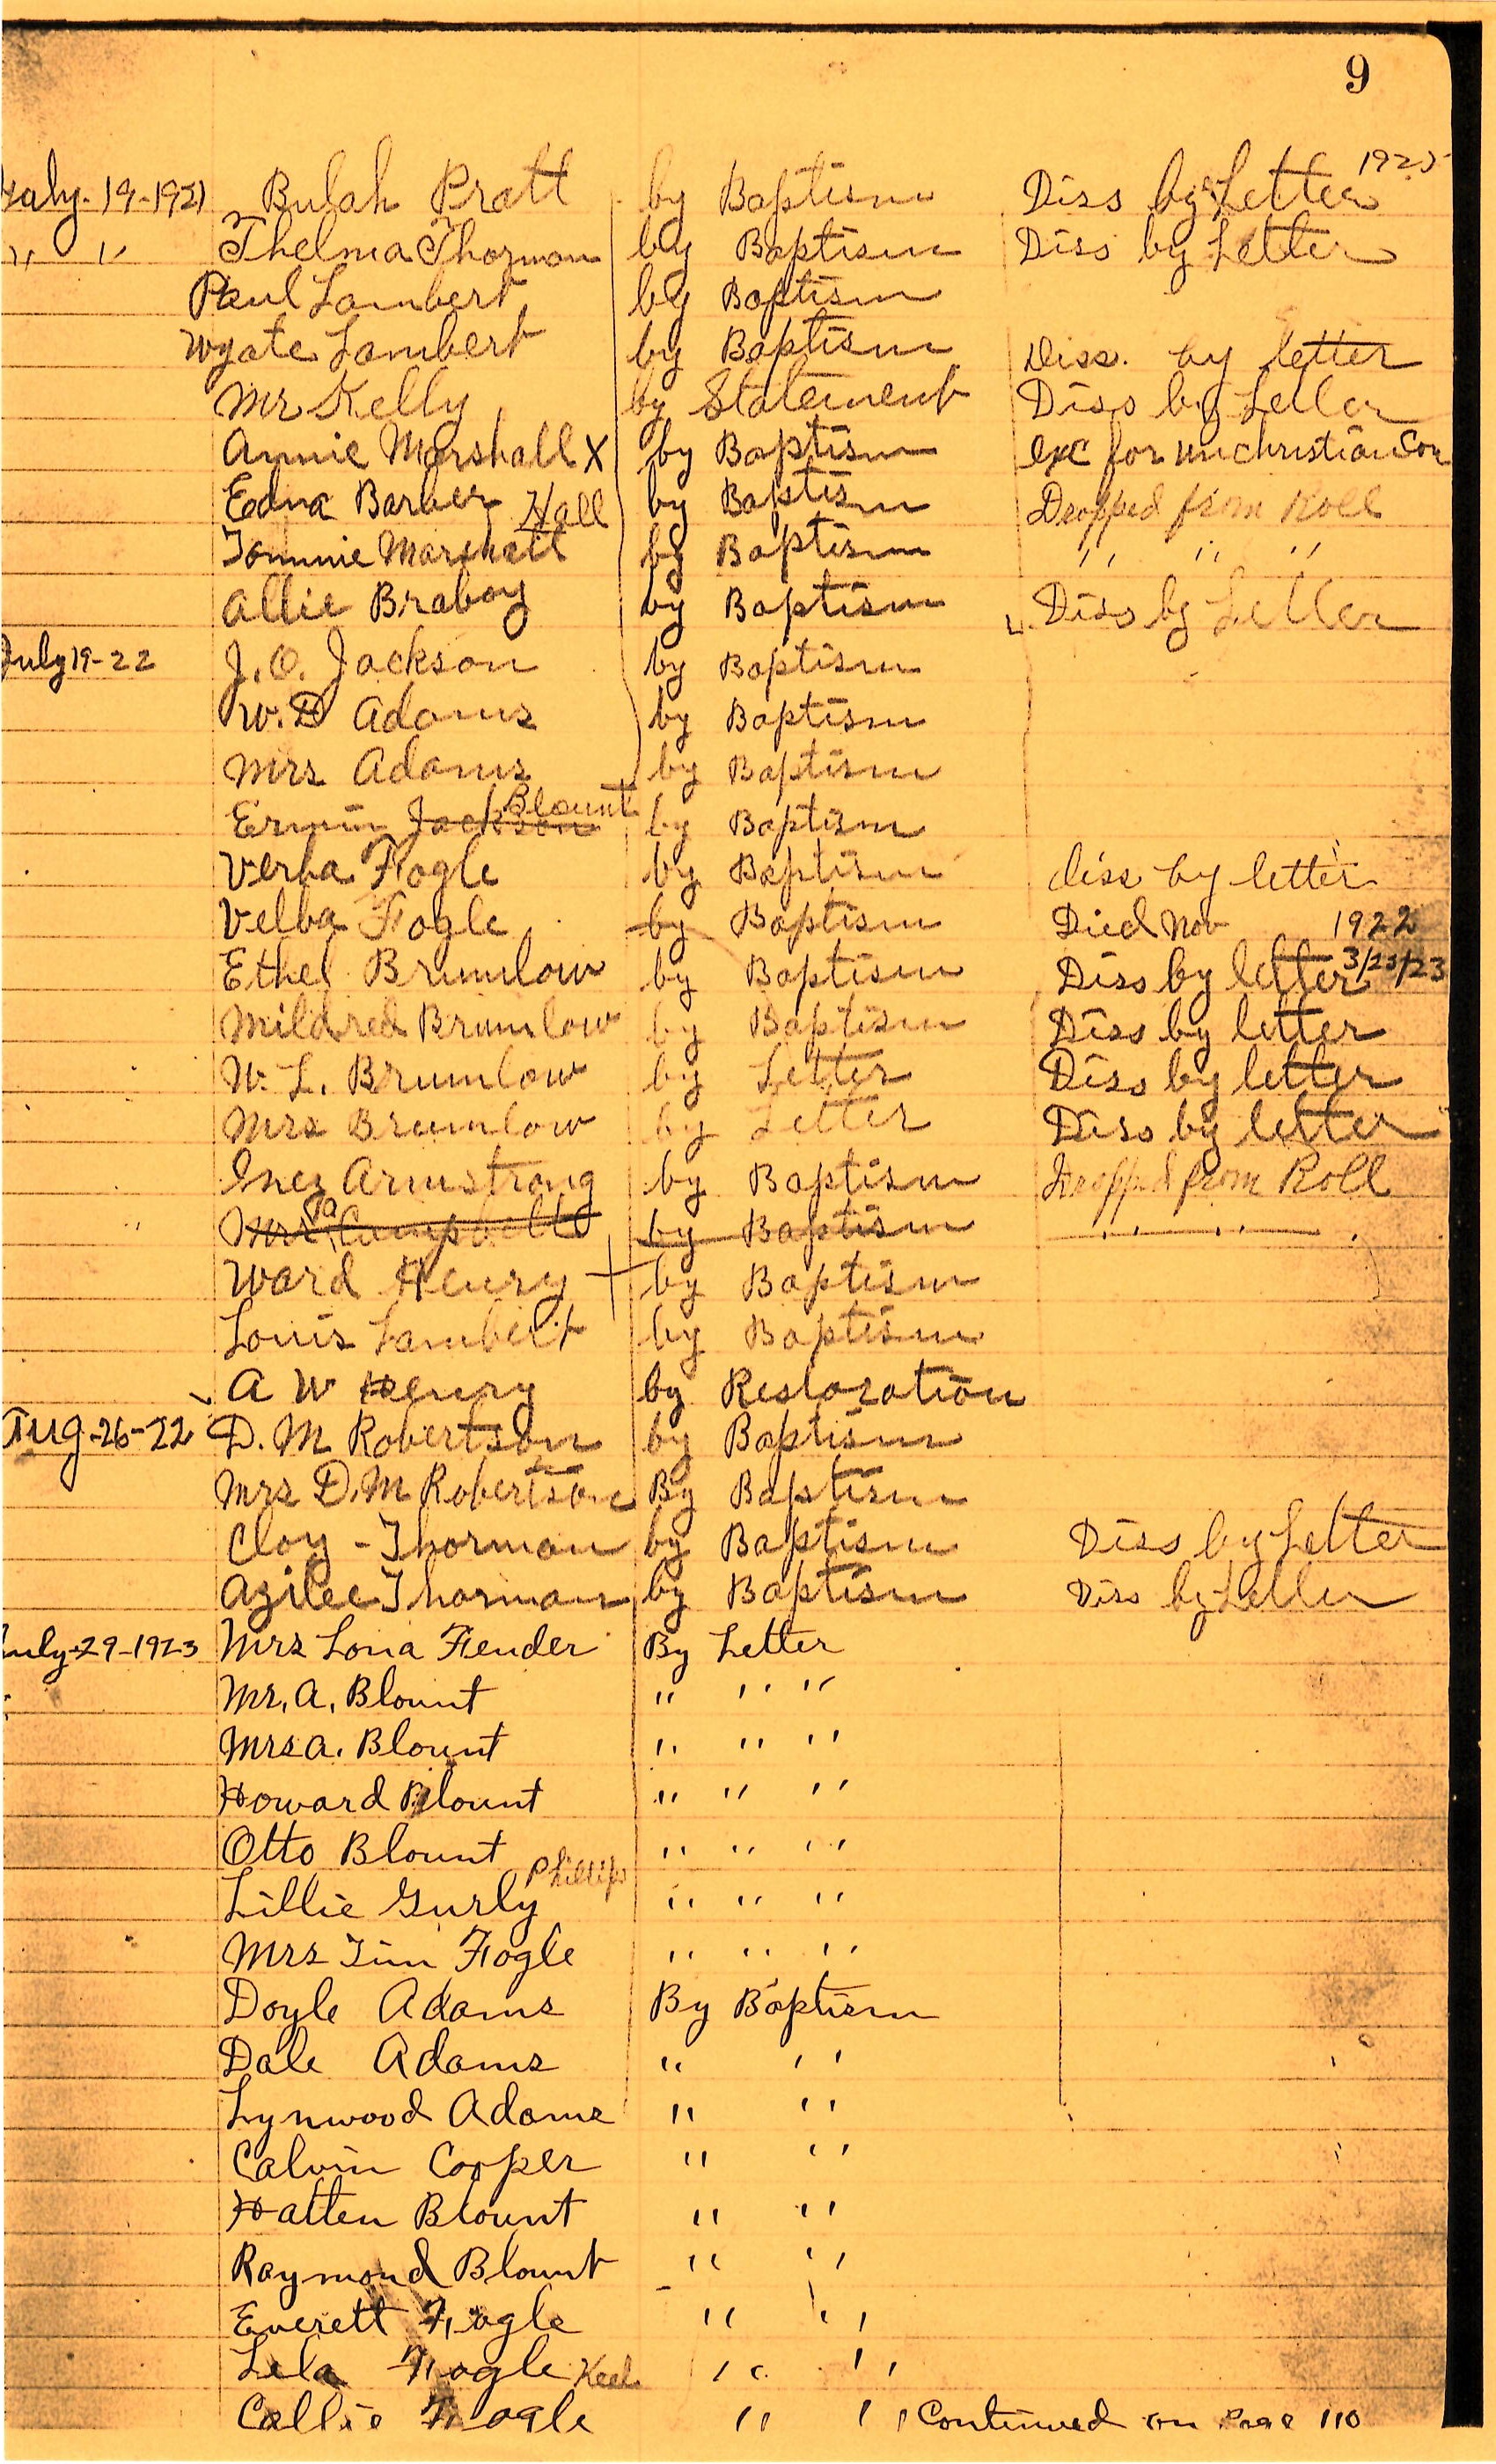 9
July-19-1921 Bulah Pratt by Baptism Diss by Letter 1925
" " Thelma Thorman by Baptism Diss by Letter
Paul Lambert by Baptism
Wyate Lambert by Baptism Diss. by letter
Mr Kelly by Statement Diss by Letter
Annie Marshall X by Baptism exc for unchristian Con
Edna Barber Hall by Baptism Dropped from Roll
Tommie Marshall by Baptism " " "
Allie Braboy by Baptism Diss by Letter
July 19-22 J. O. Jackson by Baptism
W. D Adams by Baptism
Mrs Adams by Baptism
Erwin Jackson Blount by Baptism
Verba Fogle by Baptism diss by letter
Velba Fogle by Baptism Died Nov 1922
Ethel Brumlow by Baptism Diss by letter 3/25/23
Mildred Brumlow by Baptism Diss by letter
W. L. Brumlow by Letter Diss by letter
Mrs Brumlow by Letter Diss by letter
Inez Armstrong by Baptism Dropped from Roll
Mrs Campbell by Baptism " " "
Ward Henry + by Baptism
Louis Lambert by Baptism
A W Henry by Restoration
Aug-26-22 D. M Robertson by Baptism
Mrs D. M Robertson By Baptism
Cloy - Thorman by Baptism Diss by Letter
Azilee Thorman by Baptism Diss by Letter
July-29-1923 Mrs Lona Fender By Letter
Mr. A. Blount " " "
Mrs A. Blount " " "
Howard Blount " " "
Otto Blount " " "
Lillie Gurly Phillips " " "
Mrs Tim Fogle " " "
Doyle Adams By Baptism
Dale Adams " "
Lynwood Adams " "
Calvin Cooper " "
Hatten Blount " "
Raymond Blount " "
Everett Fogle " "
Lela Fogle Keel " "
Callie Fogle " " Continued on Page 110